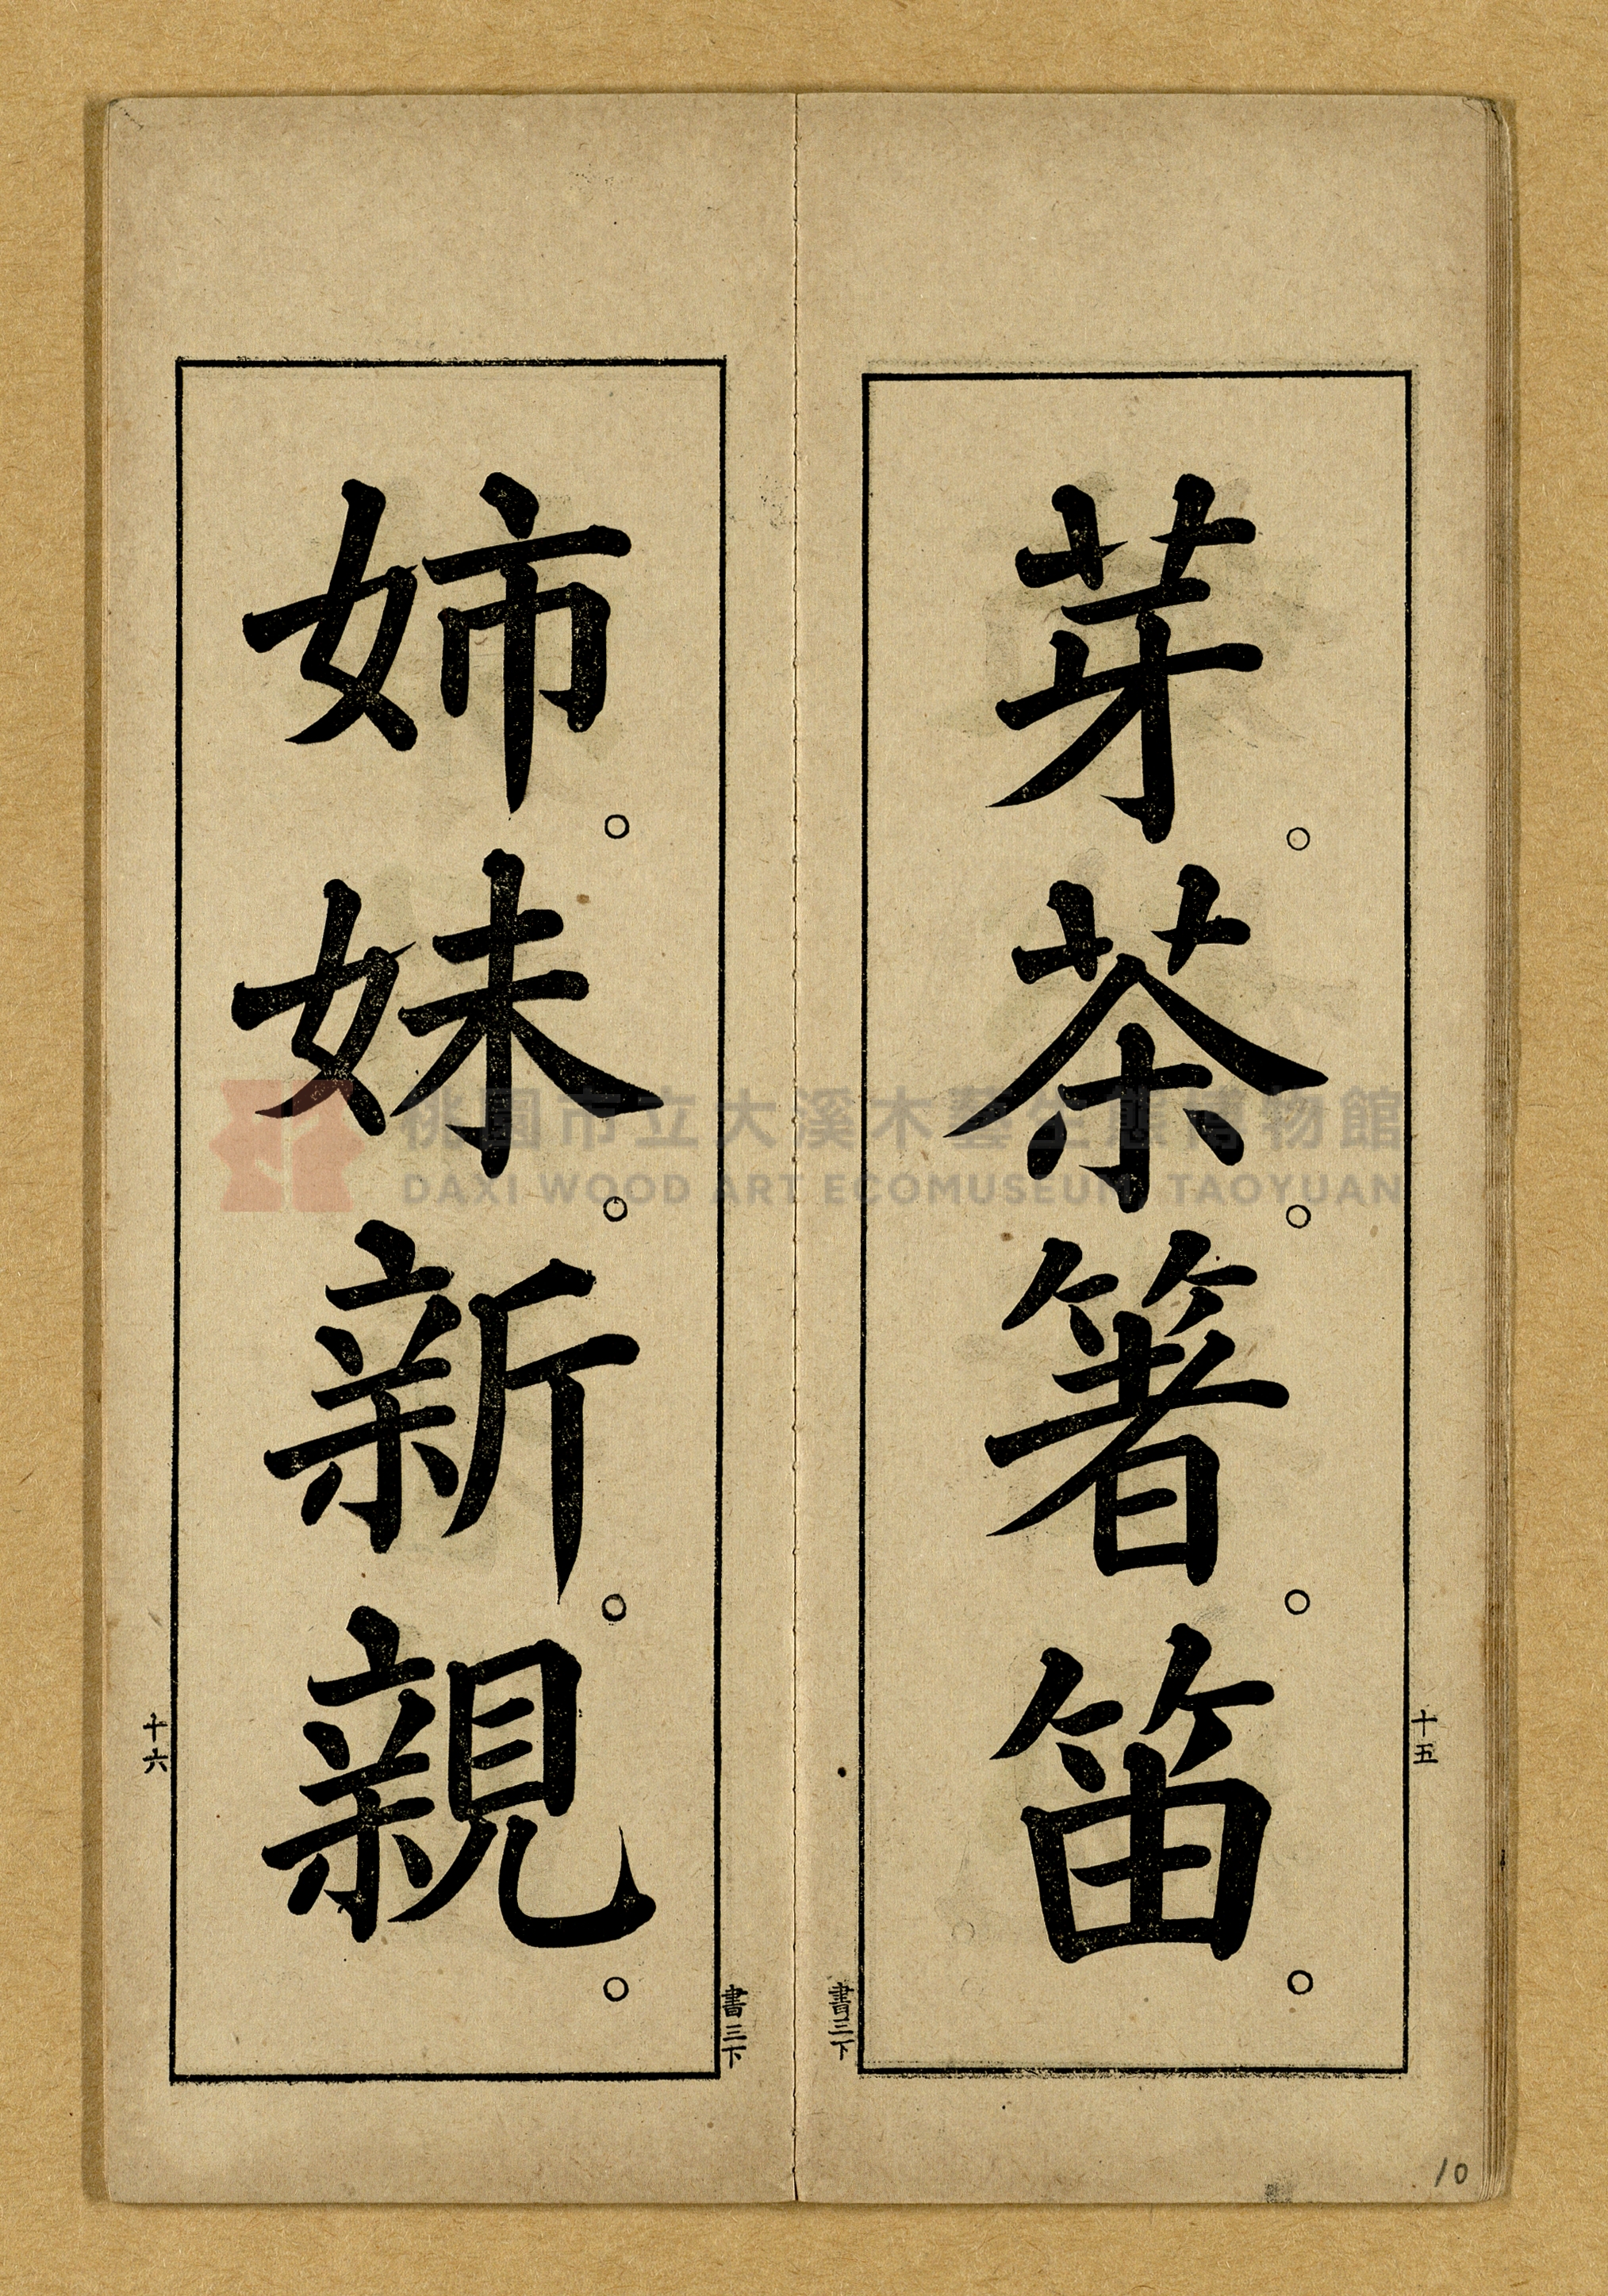 芽。茶。箸。笛。
十五
書三下
姉。妹。新。親。
十六
書三下
10
桃園市立大溪木藝生態博物館
DAXI WOOD ART ECOMUSEUM, TAOYUAN